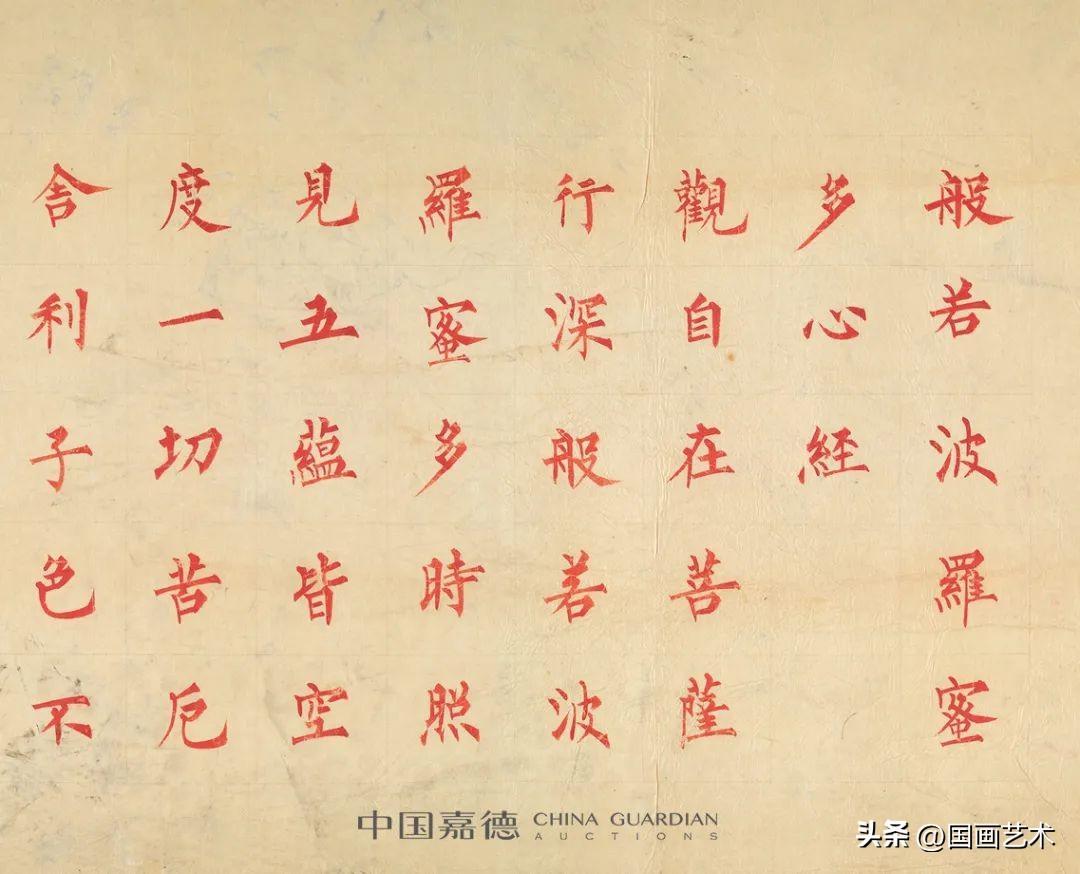 般若波羅蜜
多心經
觀自在菩薩
行深般若波
羅蜜多時照
見五蘊皆空
度一切苦厄
舍利子色不
中国嘉德 CHINA GUARDIAN
AUCTIONS
头条 @国画艺术